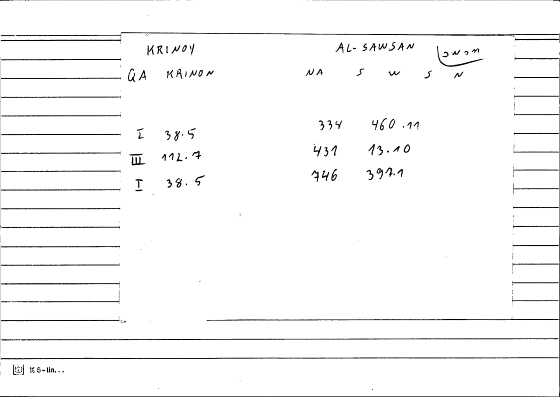 KRINOY AL-SAWSAN
QA KRINON NA S W S N
I 38.5 334 460.11
III 112.7 431 13.10
I 38.5 746 397.1